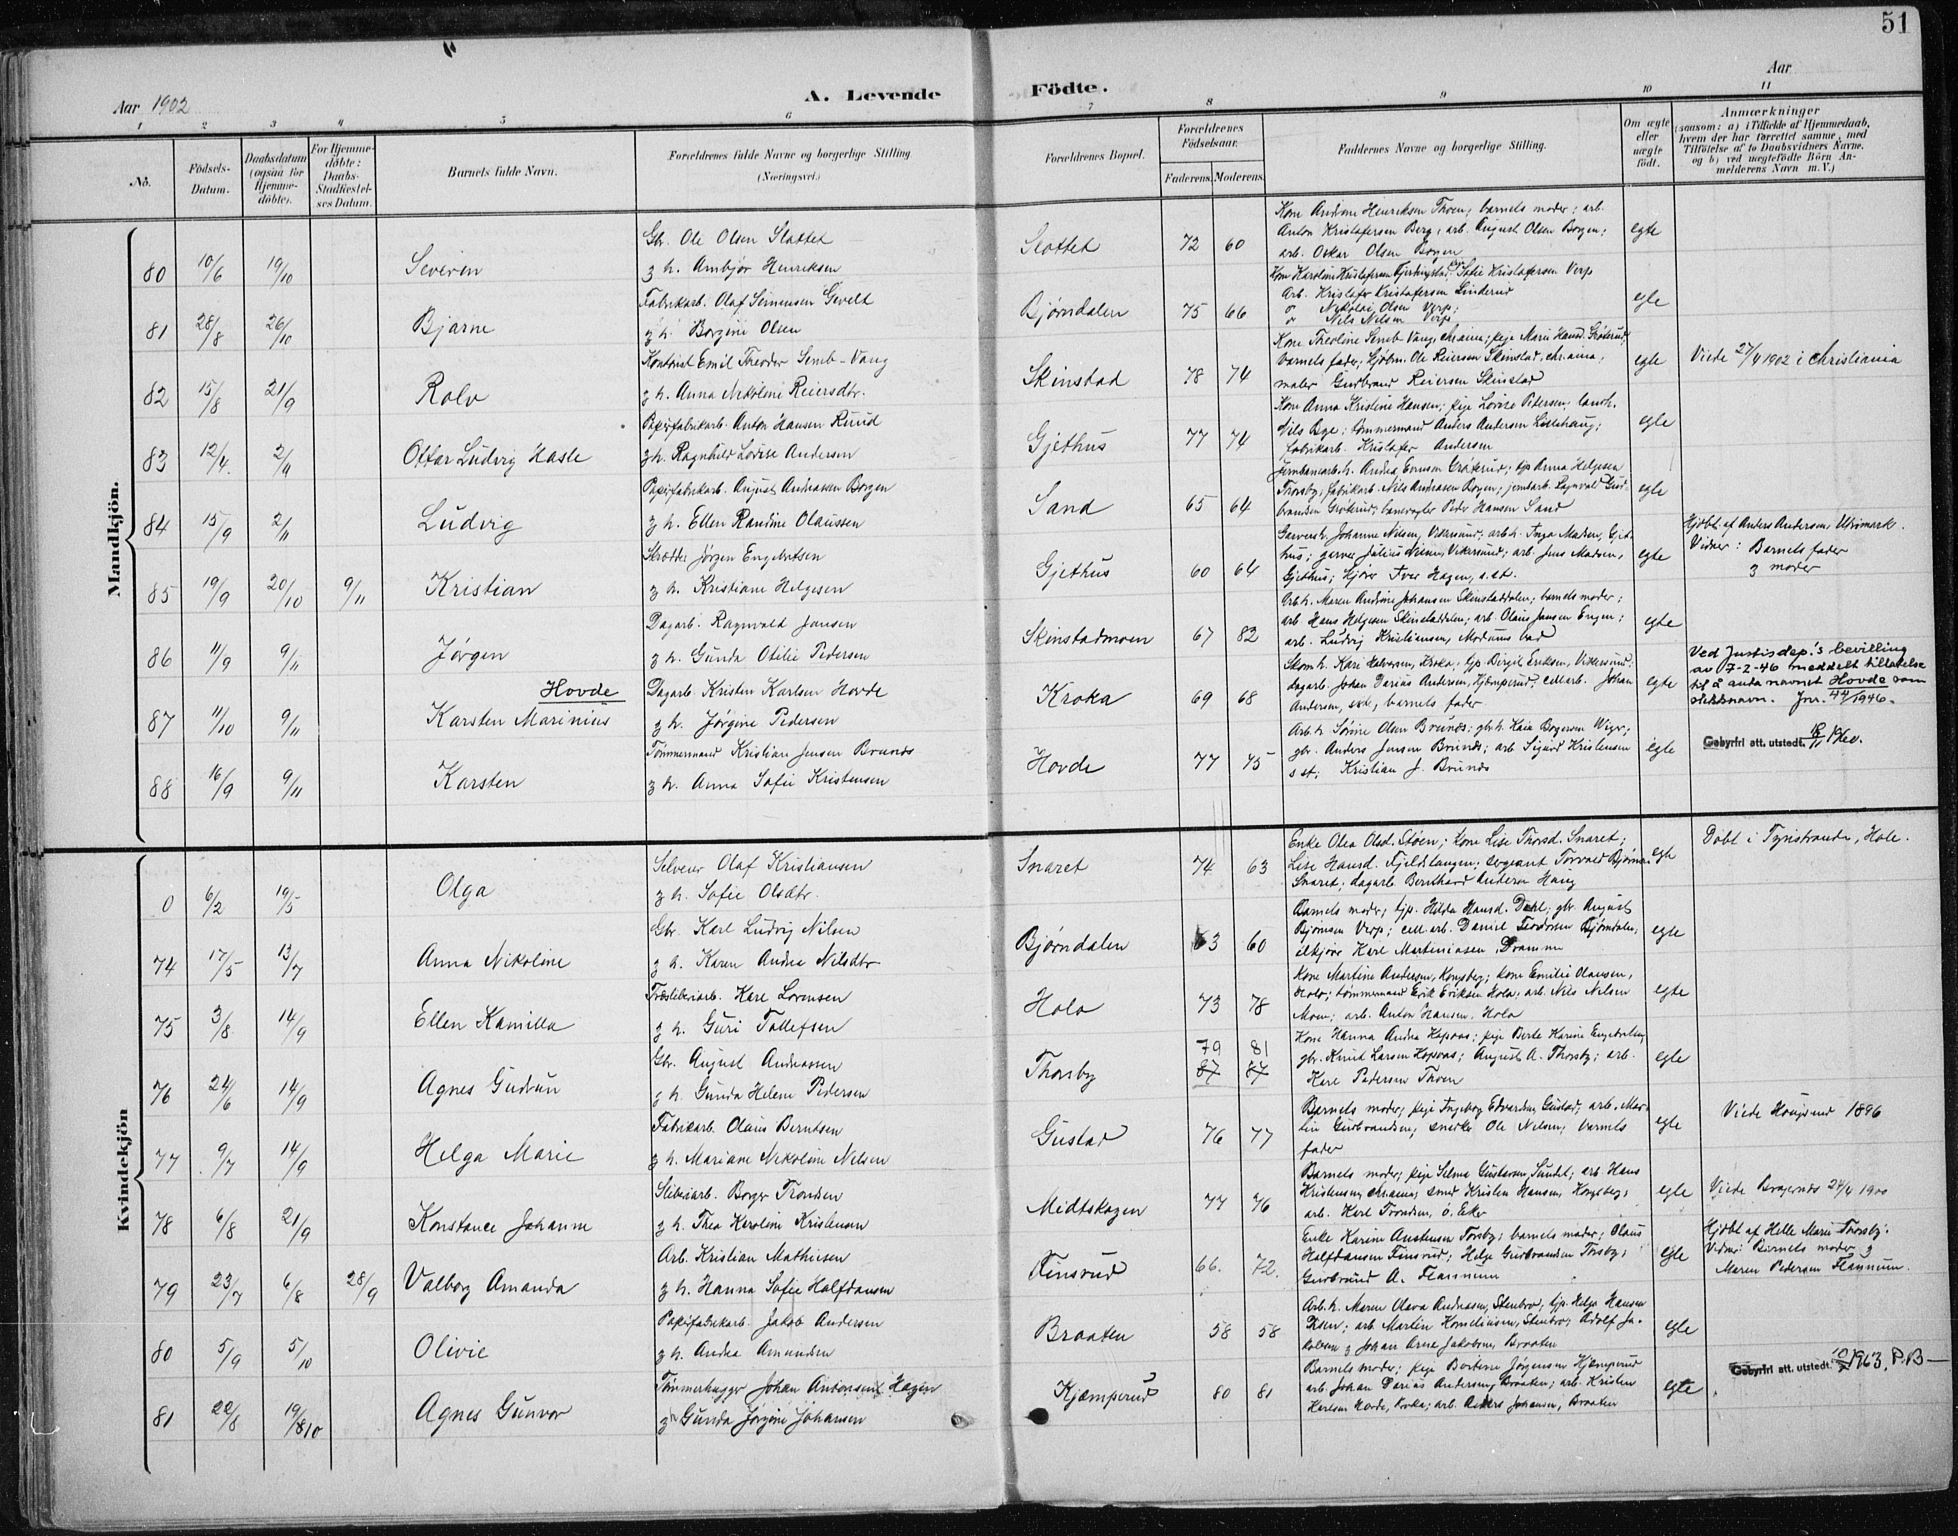 51
Aar 1902
A. Levende Födte.
Aar
1 2 3 4 5 6 7 8 9 10 11
No.
Födsels-Datum.
Daabsdatum (ogsaa for Hjemme-döbte).
For Hjemme-döbte: Daabs-Stadfæstel-ses Datum.
Barnets fulde Navn.
Forældrenes fulde Navne og borgerlige Stilling (Næringsvei.)
Forældrenes Bopæl.
Forældrenes Födselsaar.
Faderens. Moderens.
Faddernes Navne og borgerlige Stilling.
Om ægte eller uægte födt.
Anmærkninger
(saasom: a) i Tilfælde af Hjemmedaab,
hvem der har forrettet samme, med
Tilföielse af to Daabsvidners Navne,
og b) ved uægtefödte Börn An-
melderens Navn m. V.)
Mandkjön.
80 10/6 19/10 Severin
Gbr. Ole Olsen Slottet
g h. Ambjør Henriksen
Slottet 72 60
Kone Andrine Henriksen Thoen; barnets moder; arb.
Anton Kristofersen Berg; arb. August Olsen Borgen;
arb. Oskar Olsen Borgen
egte
81 28/8 26/10 Bjarne
Fabrikarb. Olaf Simensen Gevelt
g h. Borgine Olsen
Bjørndalen 75 66
Arb. Kristofer Kristofersen Linderud
Nikolai Olsen Verp;
Nils Nilsen Verp
egte
82 15/8 21/9 Rolv
Kontorist Emil Theodor Semb-Vang
g h. Anna Nikoline Reiersdtr.
Skinstad 78 74
barnets fader; Hjbm. Ole Reiersen Skinstad, Chr.ania;
maler Gudbrand Reiersen Skinstad
egte
Viede 27/4 1902 i Christiania
83 12/4. 2/11 Ottar Ludvig Hasle
Papirfabrikarb. Anton Hansen Ruud
g h. Ragnhild Lovise Andersen
Gjethus 77 74
Kone Anna Kristine Hansen; pige Lovise Petersen; landh.
Nils Bye; tømmermand Anders Andersen Lillehaug;
fabrikarb. Kristofer Andersen
egte
84 15/9 2/11 Ludvig
Papirfabrikarb. August Andreassen Borgen
g h. Ellen Randine Olaussen
Sand 65 64
Thorsby; fabrikarb. Nils Andreasen Borgen; jernbarb. Ragnvald Gud-
brandsen Grøterud; banevogter Peder Hansen Sand
egte
85 19/9 20/10 9/11 Kristian
Skrædder Jørgen Engebretsen
g h. Kristiane Helgesen
Gjethus 60 64
Garversk. Johanne Nilsen, Vikersund; arb.h. Inga Madsen, Gjet-
hus; garver Julius Nilsen, Vikersund; arb. Jens Madsen,
Gjethus; Kjører Iver Hagen, s.st.
egte
Hjdbt. af Anders Andersen Uksmark.
Vidner: Barnets fader
g moder
86 11/9 9/11 Jørgen
Dagarb. Ragnvald Jensen
g h. Gunda Otilie Pedersen
Skinstadmoen 67 82
Arb.h. Maren Andrine Johansen Skinstaddalen; barnets moder;
arb. Hans Helgesen Skinstaddalen; arb. Olaus Jensen Engen;
arb. Ludvig Kristiansen, Modums bad
egte
87 11/10 9/11 Karsten Marinius Hovde
Dagarb. Kristen Karlsen Hovde
g h. Jørgine Pedersen
Kroka 69 68
Skom.h. Kari Halvorsen, Kroka; tjp. Birgit Eriksen, Vikersund;
dagarb. Johan Darius Andersen, Kjæmperud; cell.arb. Johan
Andersen, barnets fader
egte
Ved Justisdep.'s bevilling
av 7-2-46 meddelt tillatelse
til å anta navnet Hovde som
slektsnavn. Jnr. 44/1946.
88 16/9 9/11 Karsten
Tømmermand Kristian Jensen Brunds
g h. Anna Sofie Kristensen
Hovde 77 75
Arb.h. Sørine Olsen Brunds; gbr.h. Kaia Borgersen Wiger;
gbr. Anders Jensen Brunds; arb. Sigurd Kristensen
s st; Kristian J. Brunds
egte
Gebyrfri att. utstedt. 18/11 1960.
Kvindekjön
0 6/2 19/5 Olga
Selveier Olaf Kristiansen
g h. Sofie Olsdtr.
Snaret 74 63
Enke Olea Olsd. Støen; kone Lise Thorsd. Snaret;
Lise Hansd. Fjeldstangen; sergeant Torvald Bjørnsen
Snaret; dagarb. Bernhard Andersen Haug
egte
Døbt i Tyristranda, Hole.
74 17/5 13/7 Anna Nikoline
Gbr. Karl Ludvig Nilsen
g h. Karen Andrea Nilsdtr
Bjørndalen 63 60
Barnets moder; tjp. Hilda Hansd. Dehl; gbr. August
Bjørnsen Verp; cell.arb. Daniel Teodorsen Bjørndalen,
ilkjører Karl Martiniusen Drammen
egte
75 3/8 14/9 Ellen Kamilla
Træsliberiarb. Karl Lorensen
g h. Guri Tollefsen
Hola 73 78
Kone Martine Andersen, Kongsberg; kone Emilie Olausen,
Hola; tømmermand Erik Eriksen Hola; arb. Nils Nilsen
Moen; arb. Anton Hansen, Hola
egte
76 24/6 14/9 Agnes Gudrun
Gbr. August Andreassen
g h. Gunda Helene Pedersen
Thorsby 79 81
87 87
Kone Hanna Andrea Hopsaas; pige Berte Karine Engebretsen,
gbr. Knud Larsen Hopsaas; August A. Thorsby; arb.
Karl Pedersen Thoen
egte
77 9/7 14/9 Helga Marie
Fabrikarb. Olaus Berntsen
g h. Mariane Nikoline Nilsen
Gustad 76 77
Barnets moder; pige Ingeborg Edvardsen Gustad; arb. Mar-
tin Gudbrandsen; snedker Ole Nilsen; barnets
fader
egte
Viede Hougsund 1896
78 6/8 21/9 Konstance Johanne
Sliberiarb. Borger Trondsen
g h. Thea Karoline Kristensen
Midtskogen 77 76
Barnets moder; pige Selma Gustavsen, Sundet; arb. Hans
Kristensen, Chr.ania; smed Kristen Hansen, Kongsberg;
arb. Karl Trondsen, ø. Eker
egte
Viede Bragernæs 24/4 1900
79 23/7 6/8 28/9 Valborg Amanda
Arb. Kristian Mathisen
g h. Hanna Sofie Halfdansen
Finsrud 66. 72.
Enke Karine Austensen Torsby; barnets moder; Olaus
Halfdansen Finsrud; Helge Gudbrandsen Torsby;
Gudbrand A. Flannum
egte
Hjdbt af Helle Marie Thorsby.
Vidner: Barnets moder g
Maren Pedersen Flannum.
80 5/9 5/10 Olivie
Papirfabrikarb. Jakob Andersen
g h. Andrea Amundsen
Braaten 58 58
Arb.h. Maren Olava Andreasen, Stenbro; tjp. Helga Hansen
Iksen; arb. Martin Korneliusen, Stenbro; Adolf Ja-
kobsen g Johan Arne Jakobsen, Braaten
egte
81 22/8 19/10 Agnes Gunvor
Tømmerhugger Johan Antonsen Hagen
g Gunda Jørgine Johansen
Kjæmperud 80 81
Barnets moder; pige Bertine Jørgensen Kjæmperud
arb. Johan Darius Andersen, Braaten; arb. Kristen
Karlsen Hovde, Kroka; arb. Anders Johansen, Braaten
egte
Gebyrfri att. utstedt. 1963. P.B—